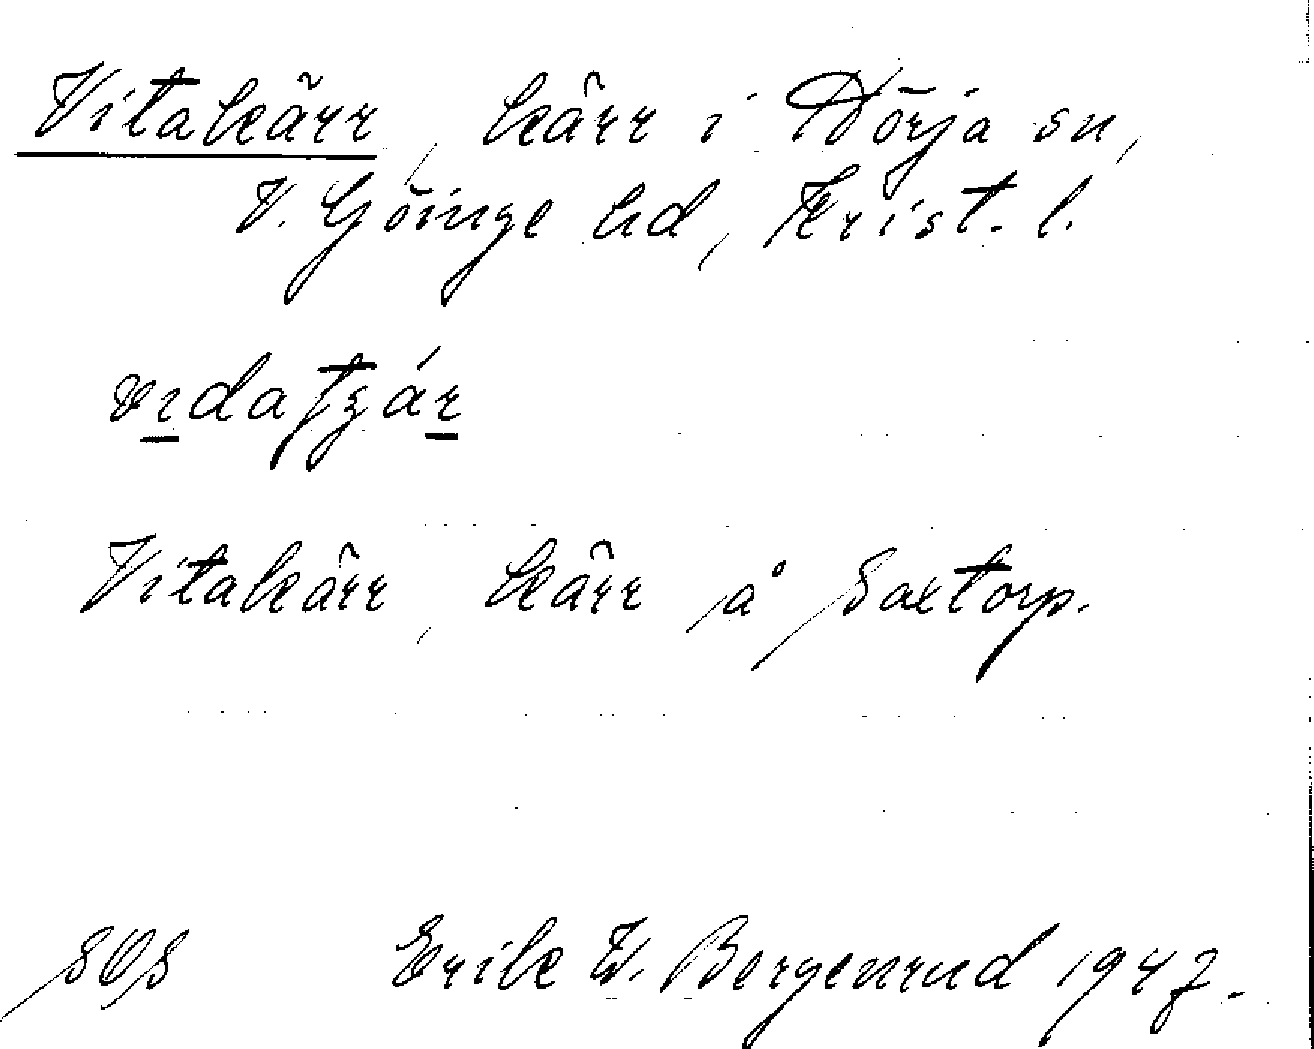 Vitakärr, kärr i Dörja sn,
V. Göinge hd, Krist. l.
vidatʒár
Vitakärr, kärr å Saxtorp.
SOS Erik W. Bergenrud 1947.